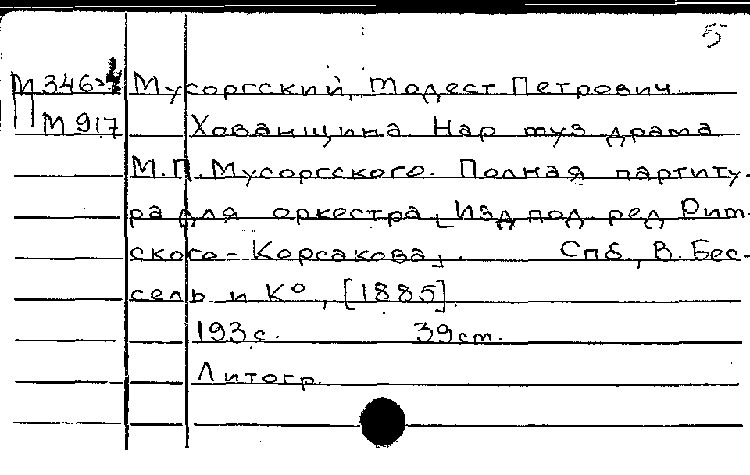 5
М 346-4 Мусоргский, Модест Петрович
М 917 Хованщина. Нар муз драма
М.П. Мусоргского. Полная партиту-
ра для оркестра [Изд под ред Рим-
ского-Корсакова]. Спб, В. Бес-
сель и К°, [1885]
193 с. 39 см.
Литогр.